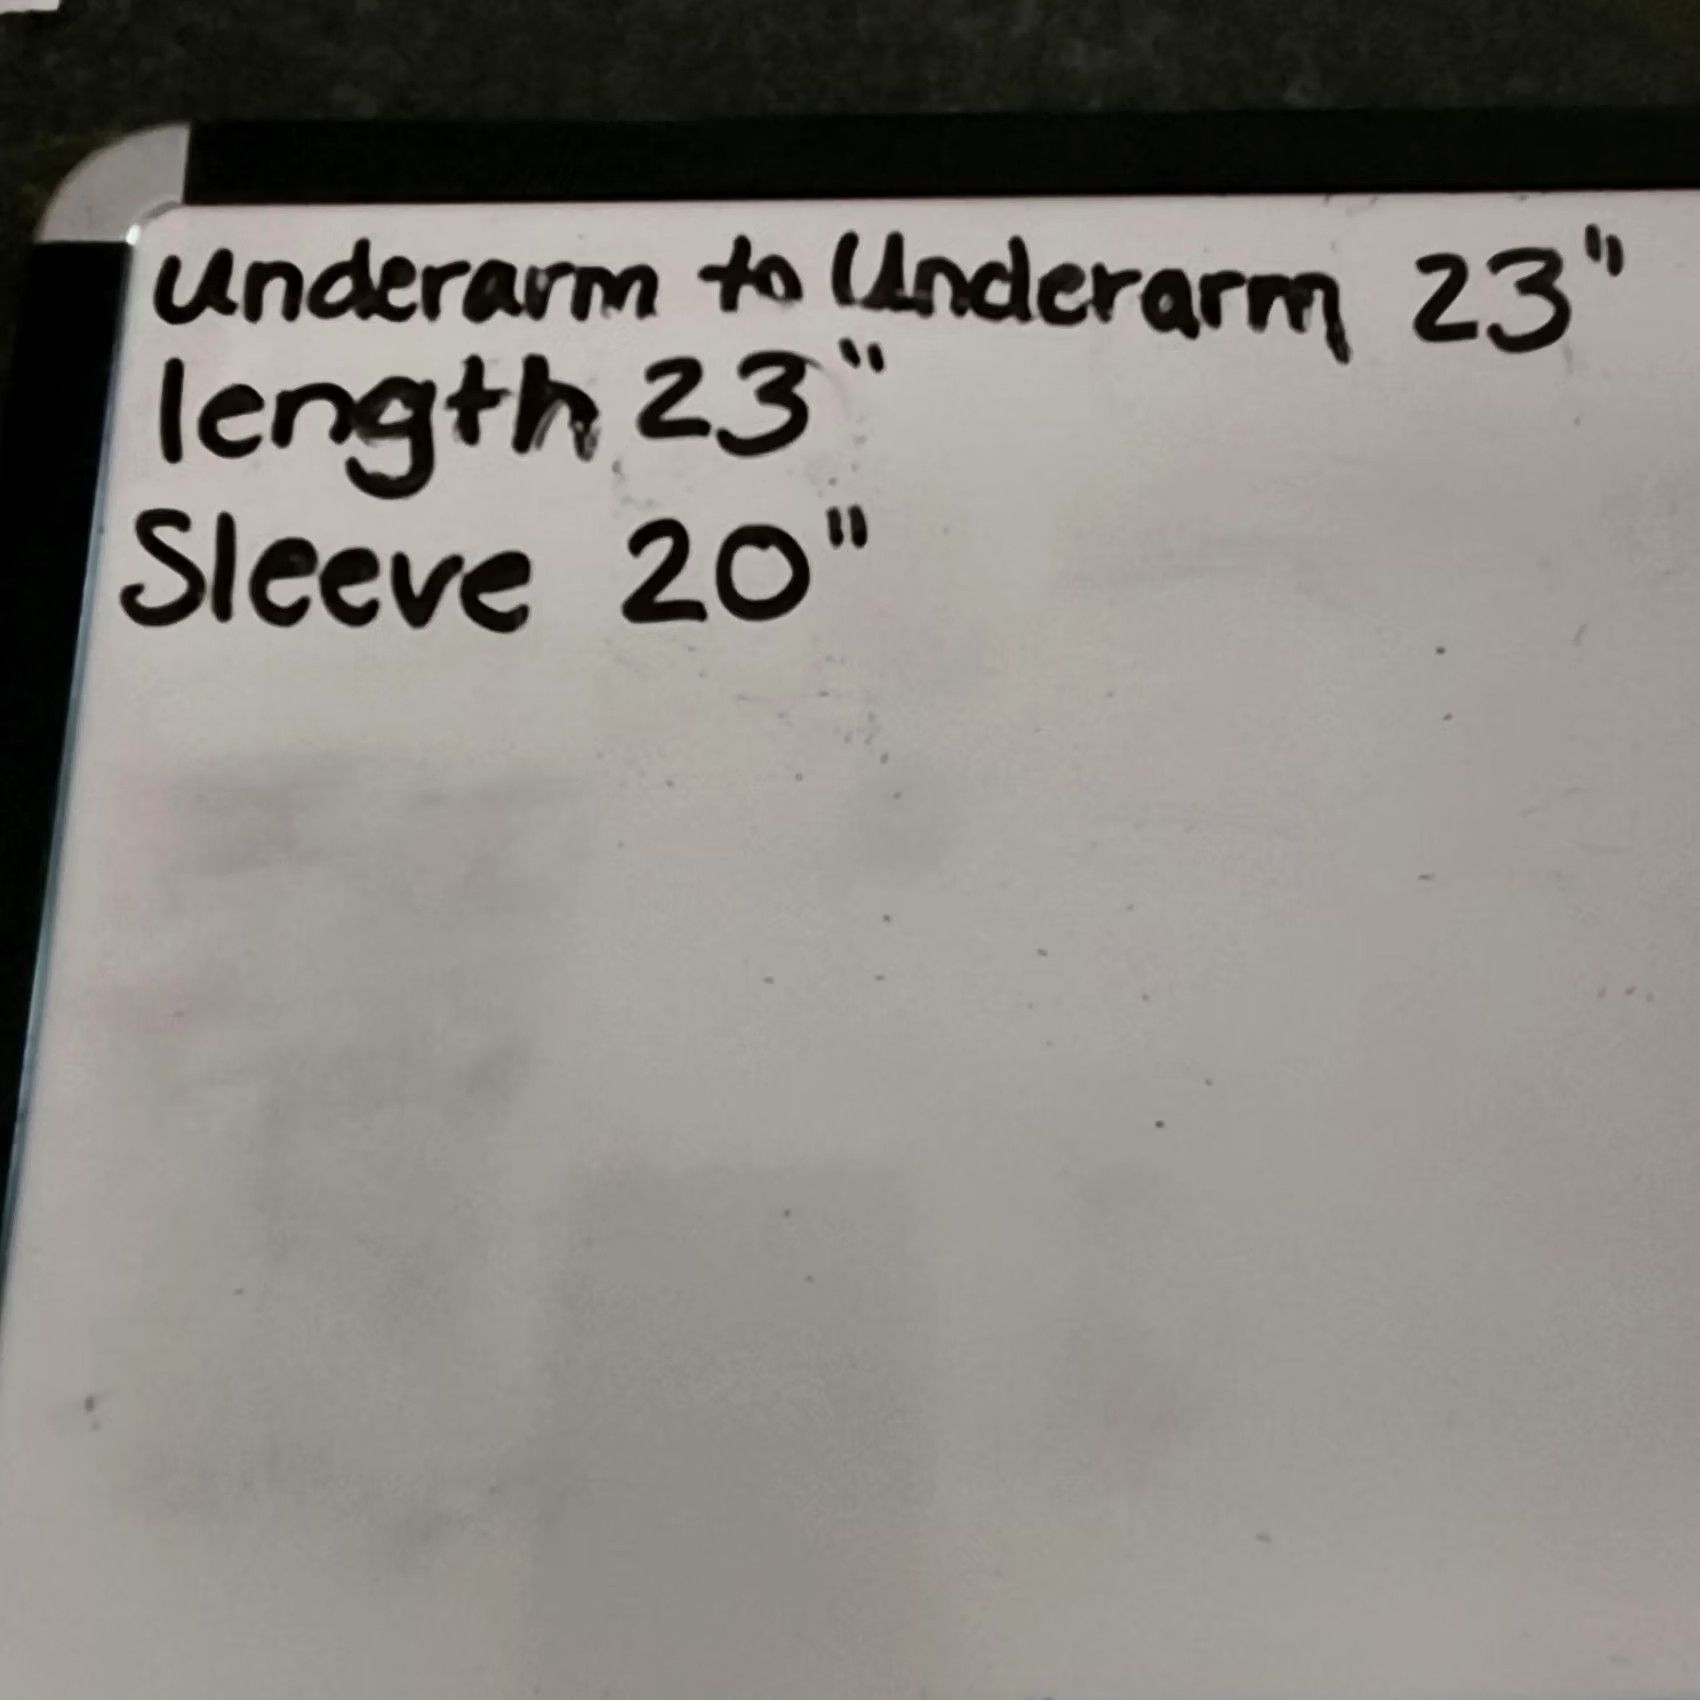 Underarm to Underarm 23"
length 23"
Sleeve 20"